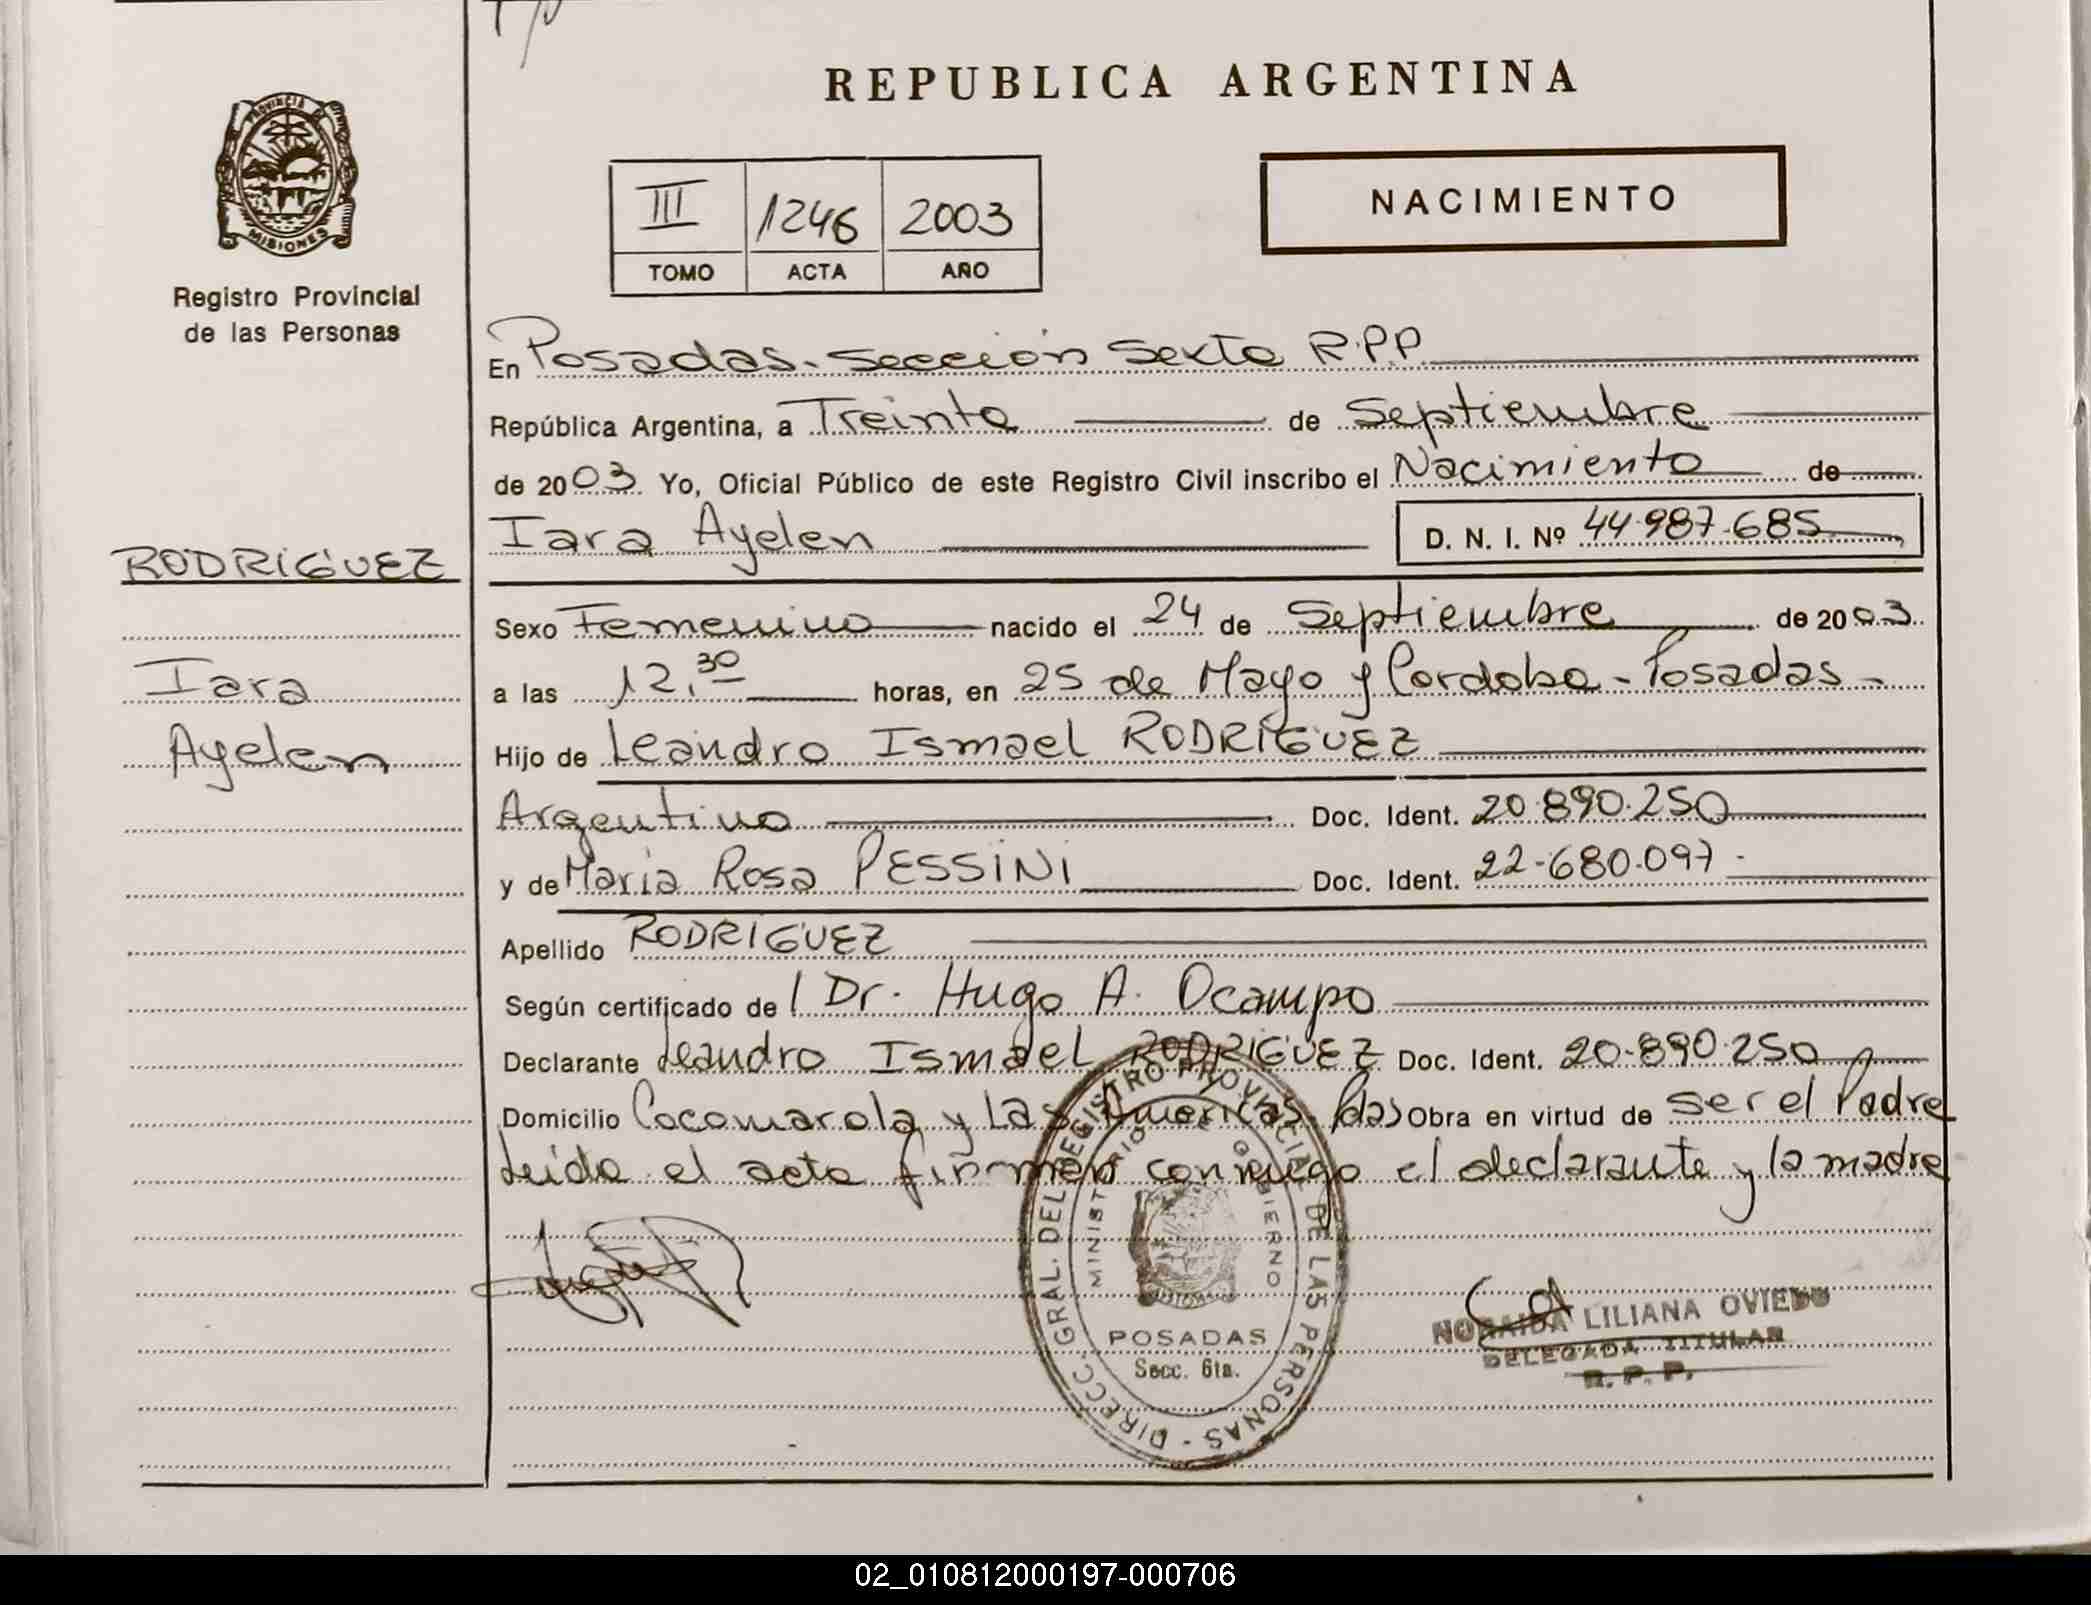 REPUBLICA ARGENTINA
PROVINCIA
MISIONES
Registro Provincial
de las Personas
III 1246 2003
TOMO ACTA AÑO
NACIMIENTO
En Posadas - Sección Sexta R.P.P
República Argentina, a Treinta de Septiembre
de 2003 Yo, Oficial Público de este Registro Civil inscribo el Nacimiento de
Iara Ayelen D. N. I. Nº 44.987.685
RODRIGUEZ
Iara
Ayelen
Sexo Femenino nacido el 24 de Septiembre de 2003
a las 12.30 horas, en 25 de Mayo y Cordoba - Posadas -
Hijo de Leandro Ismael RODRIGUEZ
Argentino Doc. Ident. 20.890.250
y de Maria Rosa PESSINI Doc. Ident. 22-680.097 -
Apellido RODRIGUEZ
Según certificado de l Dr. Hugo A. Ocampo
Declarante Leandro Ismael RODRIGUEZ Doc. Ident. 20-890.250
Domicilio Cocomarola y Las Americas. Pdas Obra en virtud de ser el Padre
Leida el acta firman conmigo el declarante y la madre
DIRECC. GRAL. DEL REGISTRO PROVINCIAL DE LAS PERSONAS -
MINISTERIO DE GOBIERNO
POSADAS
Secc. 6ta.
NORAIDA LILIANA OVIEDO
DELEGADA TITULAR
R. P. P.
02_010812000197-000706